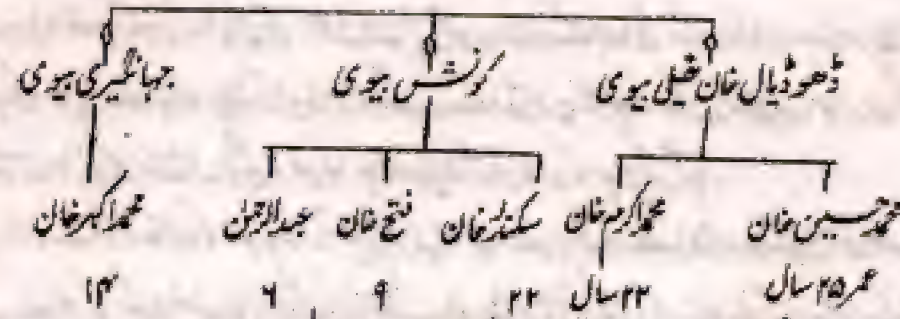 ڈھوڈیال خان خیلی بیوی کونش بیوی جہانگیری بیوی
محمد حسین خان محمد اکرم خان سکندر خان فتح خان عبدالرحمٰن محمد اکبر خان
عمر ۲۵ سال ۲۳ سال ۲۲ ۹ ۶ ۱۴